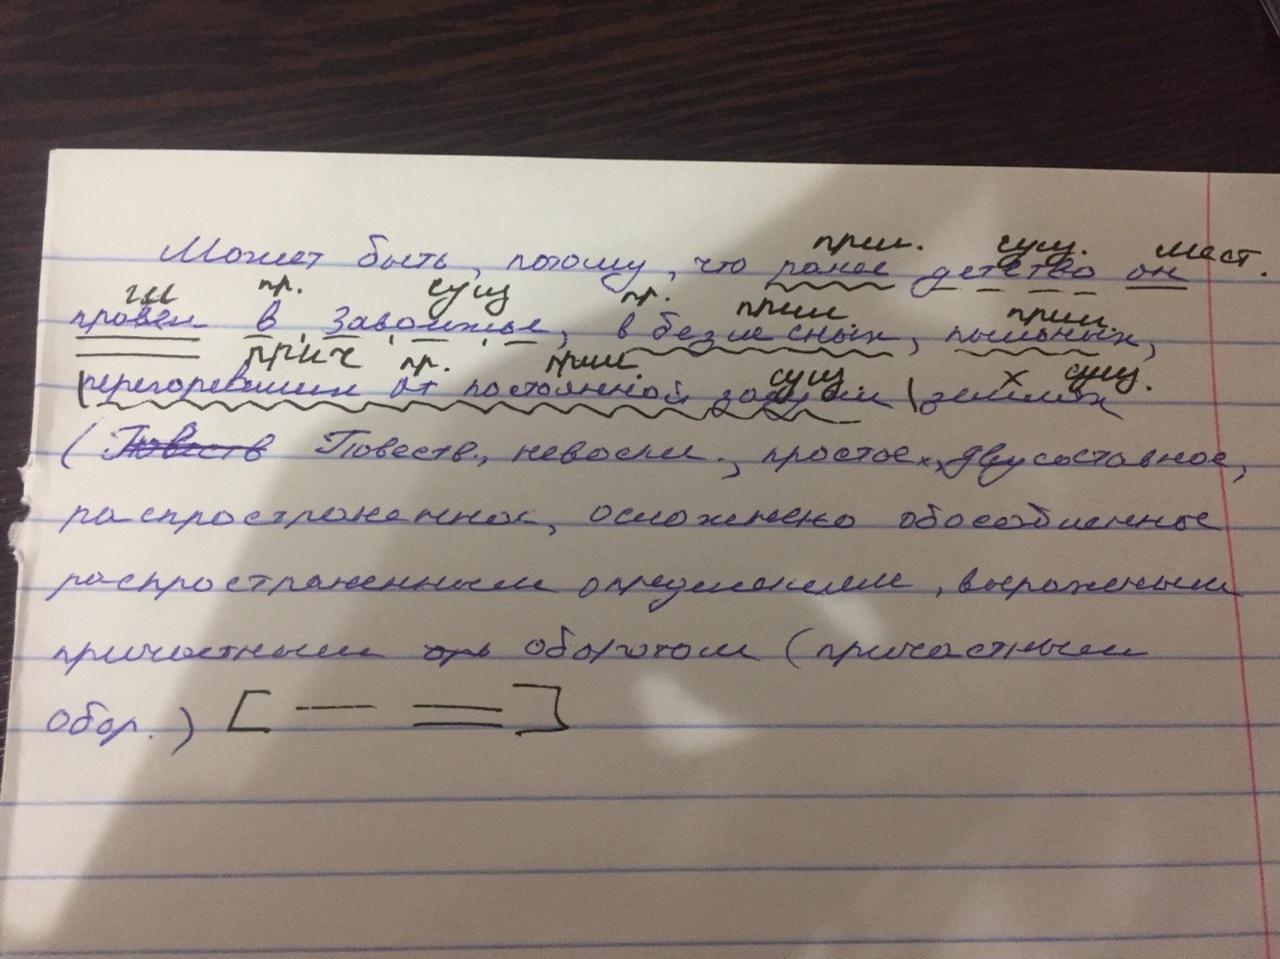 прил. сущ. мест.
Может быть, потому, что ранее детство он
гл пр. сущ пр. прил прил.
провёл в Заволжье, в безлесных, пыльных,
прич пр. прил. сущ х сущ.
перегоревших от постоянной засухи землях
(Повеств Повеств., невоскл., простое, двусоставное,
распространенное, осложнено обособленное
распространенным определением, выраженым
причастным обр оборотом (причастным
обор.) [ ]